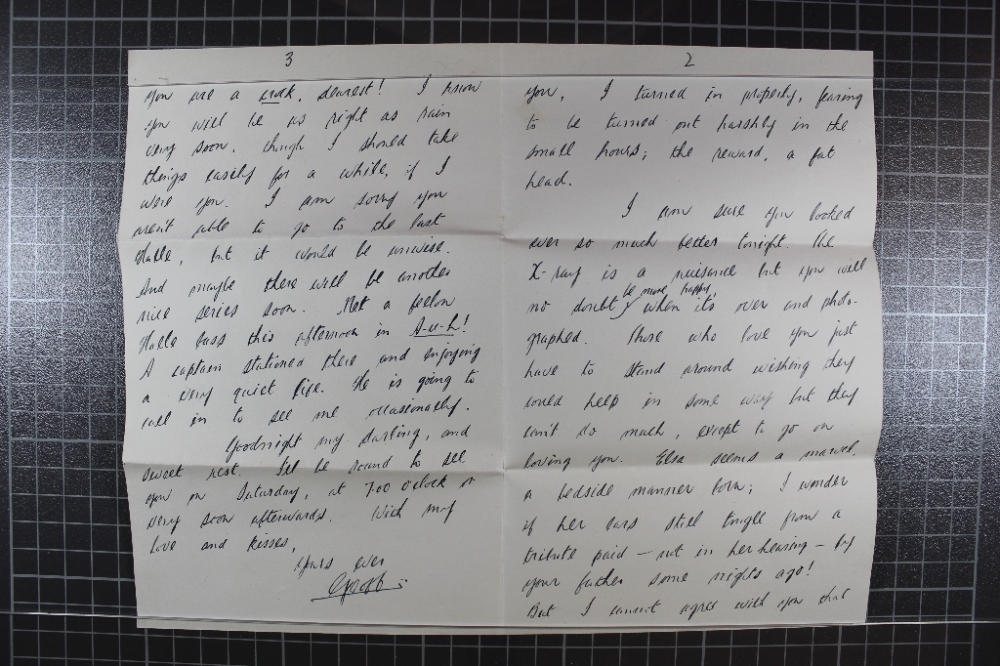 2
you. I turned in properly, fearing
to be turned out harshly in the
small hours; the reward, a fat
head.
I am sure you looked
ever so much better tonight. The
X-ray is a nuisance but you will
no doubt be more happy when it's over and photo-
graphed. Those who love you just
have to stand around wishing they
could help in some way but they
can't do much, except to go on
loving you. Elsa seems a marvel,
a bedside manner born; I wonder
if her ears still tingle from a
tribute paid – not in her hearing – by
your father some nights ago!
But I cannot agree with you that
3
you are a crock, dearest! I know
you will be as right as rain
very soon, though I should take
things easily for a while, if I
were you. I am sorry you
aren't able to go to the last
Halle, but it would be unwise.
And maybe there will be another
nice series soon. Met a fellow
Halle bass this afternoon in A-u-L!
A captain stationed there and enjoying
a very quiet life. He is going to
call in to see me occasionally.
Goodnight my darling, and
sweet rest. I'll be round to see
you on Saturday, at 7.00 o'clock or
very soon afterwards. With my
love and kisses,
Yours ever